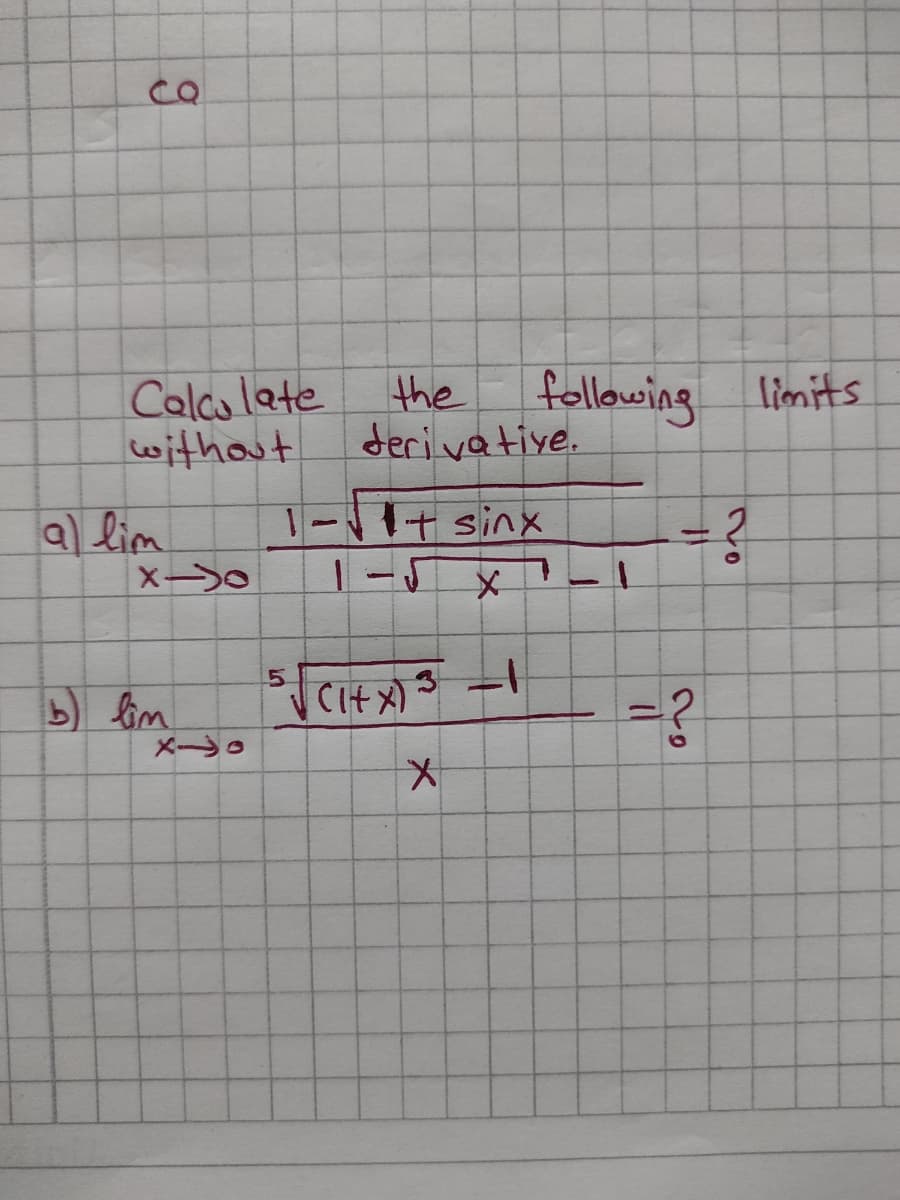 CQ
Calculate the following limits
without derivative.
a) lim x→0 (1-√(1+ sinx))/(1-√x -1) = ?
b) lim x→0 (⁵√((1+x)³) -1)/x = ?